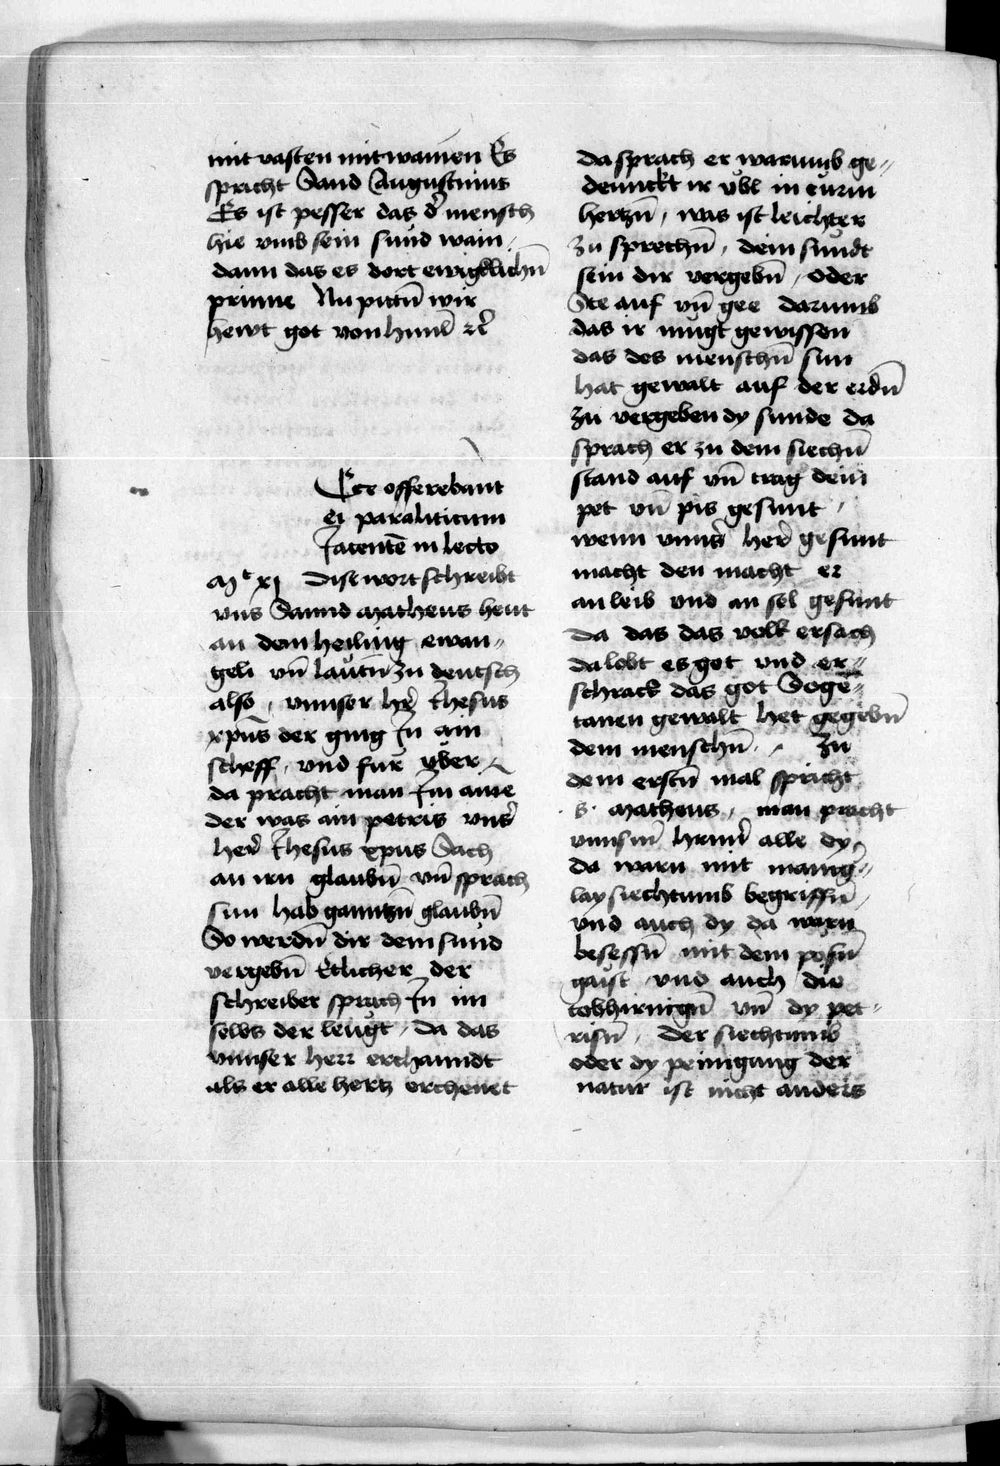 mit vasten mit wainen Es
spricht Sand Augustinus
Es ist pesser das d̾ mensch
hie vmb sein sund wain
dann das es dort ewigklichn̄
prinne Nu pittn̄ wir
hewt got von himl̄ ꝛc̾
Ecce offerebant
ei paraliticum
Jacentē in lecto
Mt xj Dise wort schreibt
vns Sannd Matheus heut
an dem heiling ewan⸗
geli vn̄ lautn̄ zu deutsch
also , vnnser he̾r Jhesus
xpūs der ging Jn ain
scheff , vnd fur vber
da pracht man Jm aine
der was ain petris vns̾
her̾ Jhesus xpus Sach
an irn glaubn̄ vn̄ sprach
sun hab ganntzn̄ glaubn̄
So werdn̄ dir dein sund
vergebn̄ Etlicher der
schreiber sprach Jn im
selbs der leugt , da das
vnnser herr erchanndt
als er alle hertz erchennet
da sprach er warumb ge⸗
dennckt ir vbl in eurm
hertzn̄ , was ist leichter
zu sprechn̄ , dein sundt
sein dir vergebn̄ , oder
Ste auf vn̄ gee darumb
das ir mugt gewissen
das des menschn̄ sun
hat gewalt auf der erdn̄
zu vergeben dy sunde da
sprach er zu dem siechn̄
stand auf vn̄ trag dein
pet vn̄ pis gesunt ,
wenn vnns̾ her̾ gesunt
macht den macht er
an leib vnd an sel gesunt
Da das das volk ersach
da lobt es got vnd er⸗
schrack das got Sogē⸗
tanen gewalt het gegebn̄
dem menschn̄ . Zu
dem erstn̄ mal spricht
S. Matheus , man pracht
vnnsm̄ herrn̄ alle dy
da warn mit manig̾⸗
lay siechtumb begriffn̄ ,
vnd auch dy da warn
besessn̄ mit dem posn̄
gaist , vnd auch die
tobhirnign̄ vn̄ dy pet⸗
risn̄ , Der siechtumb
oder dy peinigung der
natur ist nicht anders